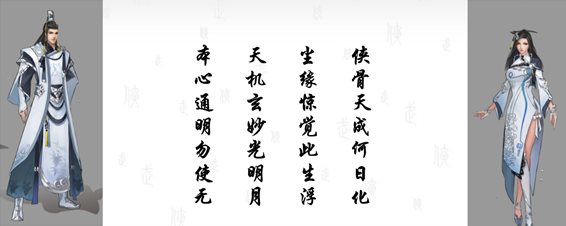 侠骨天成何日化
尘缘惊觉此生浮
天机玄妙光明月
本心通明勿使无